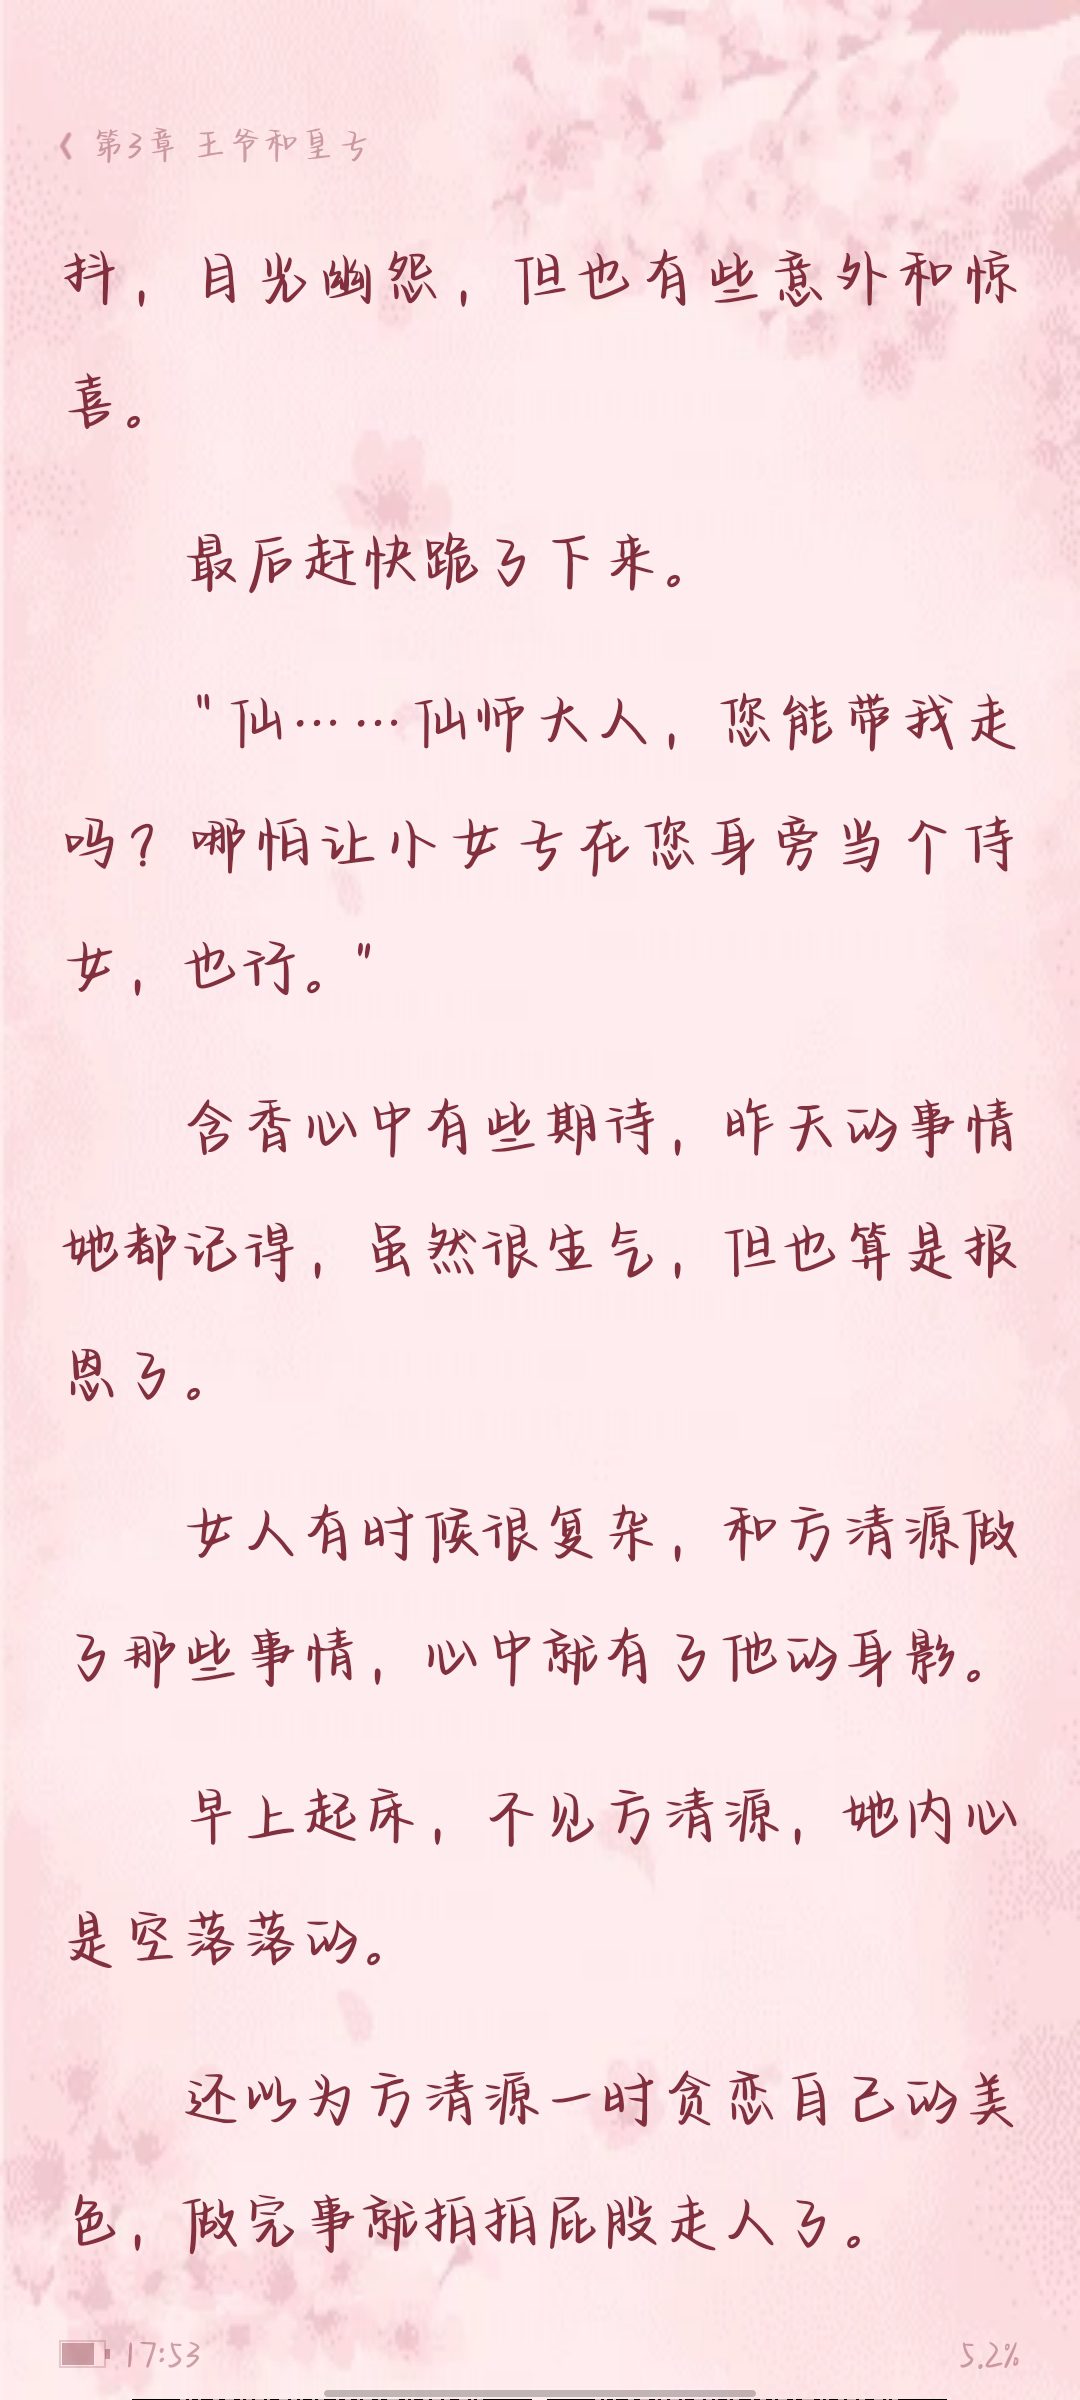 第3章 王爷和皇子
抖，目光幽怨，但也有些意外和惊
喜。
最后赶快跪了下来。
"仙……仙师大人，您能带我走
吗？哪怕让小女子在您身旁当个侍
女，也行。"
含香心中有些期待，昨天的事情
她都记得，虽然很生气，但也算是报
恩了。
女人有时候很复杂，和方清源做
了那些事情，心中就有了他的身影。
早上起床，不见方清源，她内心
是空落落的。
还以为方清源一时贪恋自己的美
色，做完事就拍拍屁股走人了。
17:53
5.2%